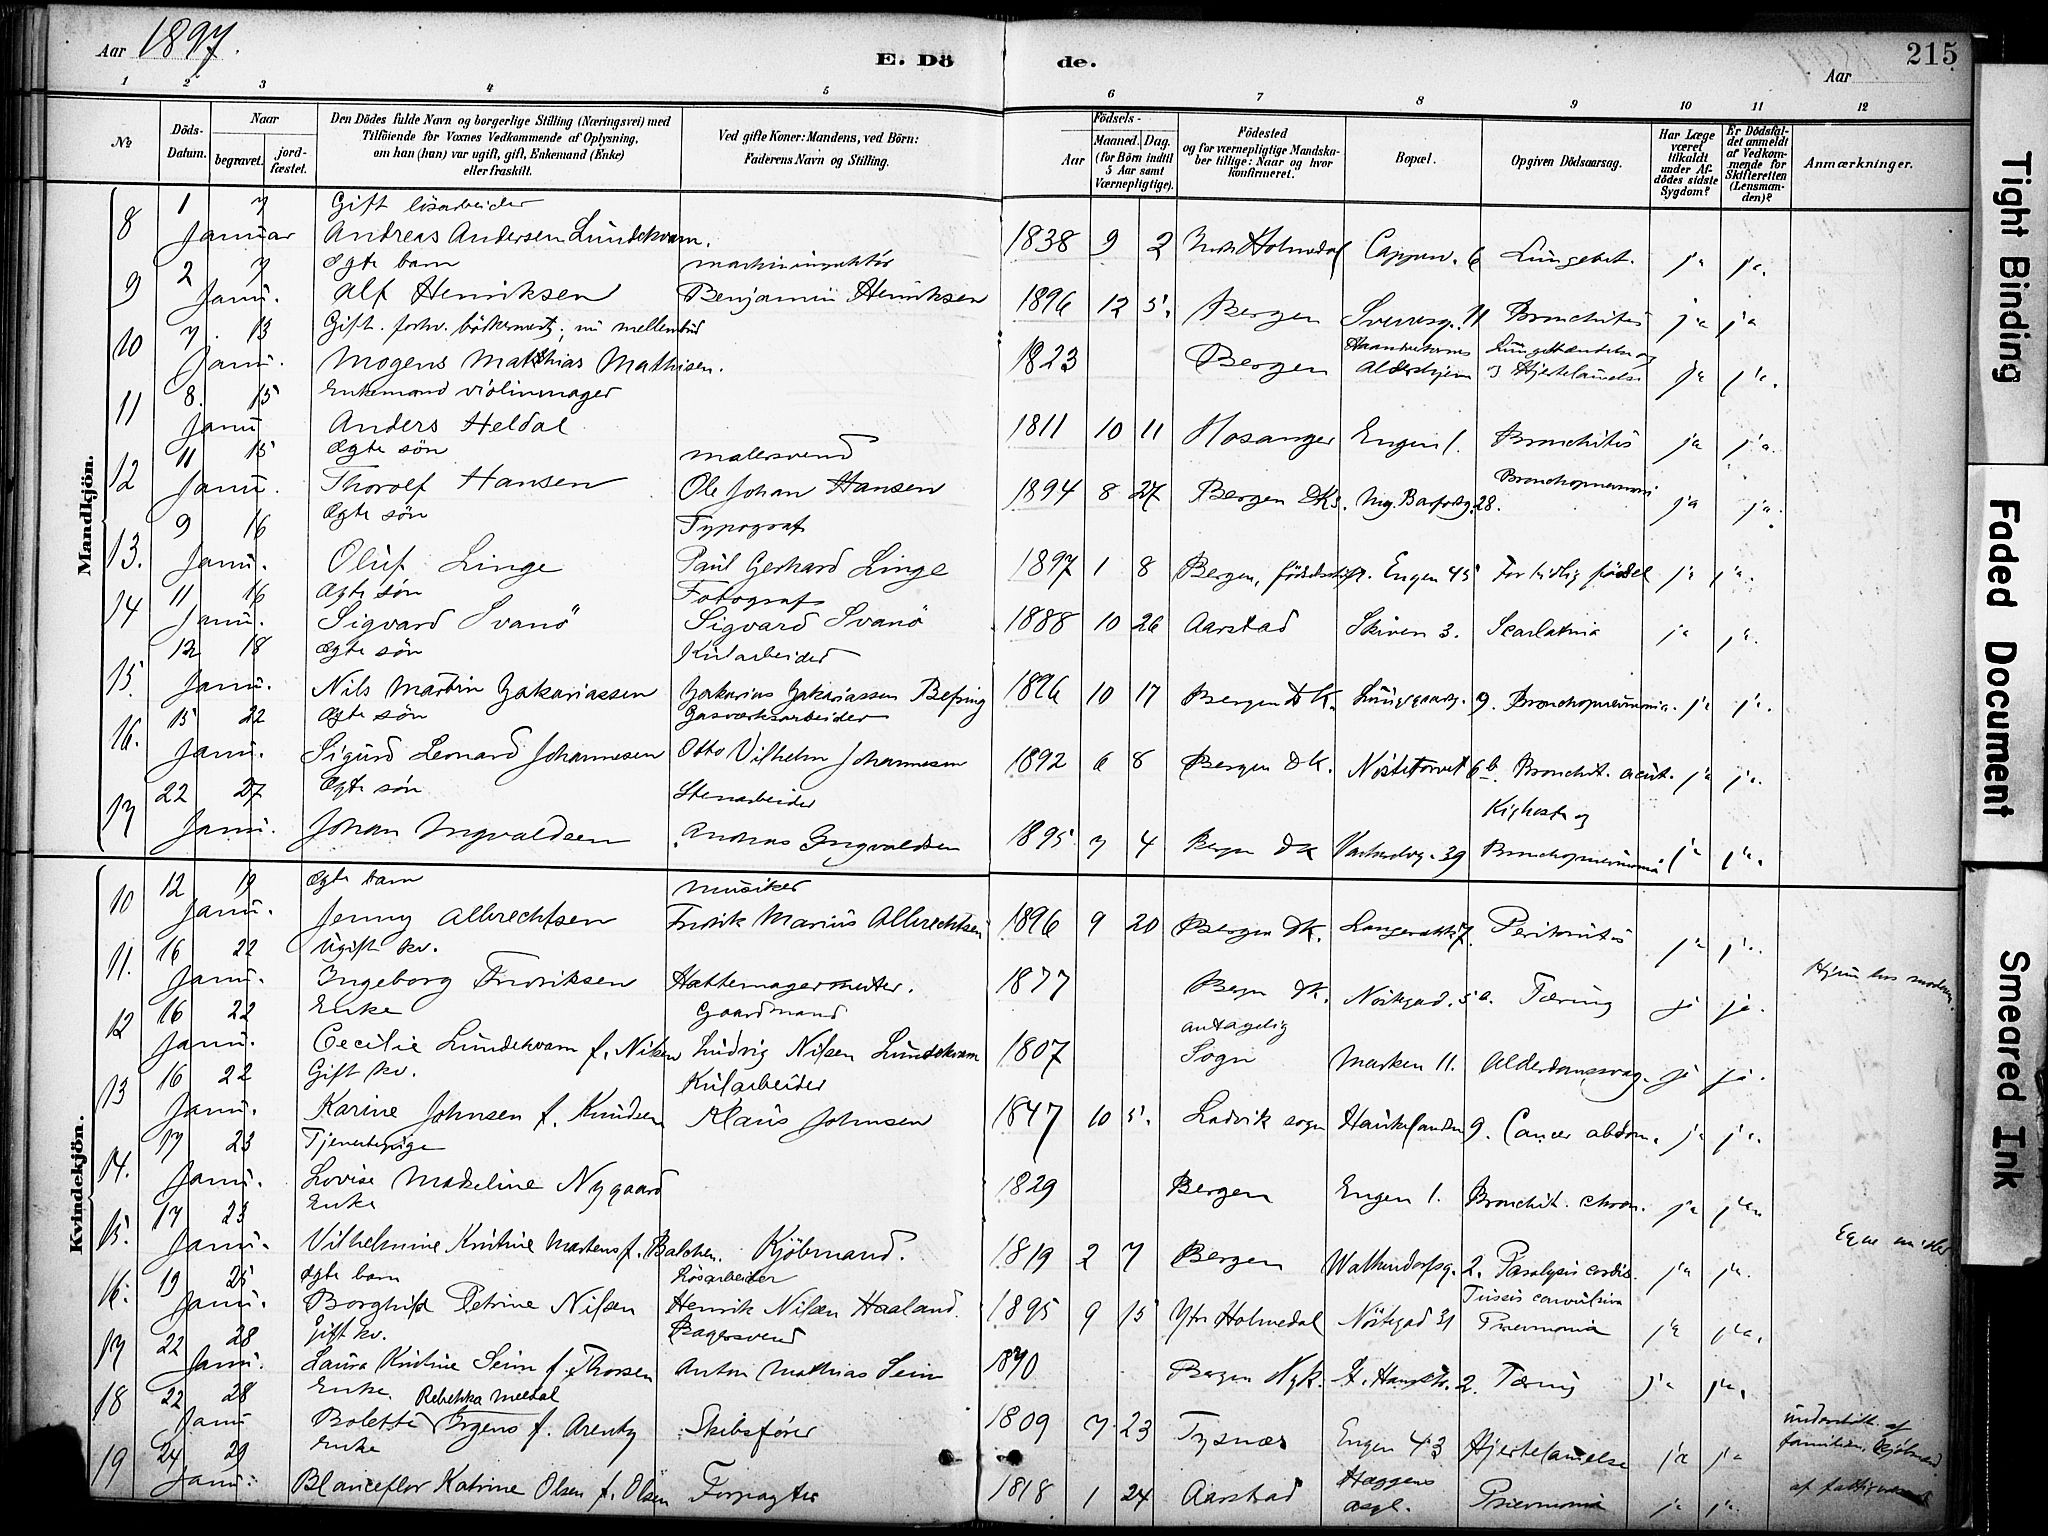 Aar 1897.
E. Döde.
Aar
215
1 2 3 4 5 6 7 8 9 10 11 12
No
Döds-Datum.
Naar
begravet.
jordfæstet.
Den Dödes fulde Navn og borgerlige Stilling (Næringsvei) med
Tilföiende for Voxnes Vedkommende af Oplysning,
om han (hun) var ugift, gift, Enkemand (Enke)
eller fraskilt.
Ved gifte Koner: Mandens, ved Börn:
Faderens Navn og Stilling.
Födsels-
Aar
Maaned. Dag.
(for Börn indtil
5 Aar samt
Værnepligtige).
Födested
og for værnepligtige Mandskaber tillige: Naar og hvor
konfirmeret.
Bopæl.
Opgiven Dödsaarsag.
Har Læge været tilkaldt under Afdödes sidste Sygdom?
Er Dödsfaldet anmeldt af Vedkommende for Skifteretten (Lensmanden)?
Anmærkninger.
Mandkjön.
8 1 7 Gift lösarbeider
Januar Andreas Andersen Lundekvam. 1838 9 2 Holmedal 6 Lungebet. ja ja.
9 2 7 ægte barn
Janu. Alf Henriksen Benjamin Henriksen 1896 12 5. Bergen Sverresg. 11 Bronchitis ja ja
10 7. 13 Gift. forhv. mellembud
Janu. Mogens Matthias Mathisen. 1823 Bergen Alderhjem og Hjertelamelse ja ja.
11 8. 15 Enkemand violinmager
Janu Anders Heldal 1811 10 11 Hosanger Engen 1. Bronchitis ja ja.
12 11 15 ægte søn malersvend
Janu. Thorolf Hansen Ole Johan Hansen 1894 8 27 Bergen DKs. 28. Bronchopneumoni ja ja.
13. 9 16 ægte søn Typograf
Janu. Oluf Linge Paul Gerhard Linge 1897 1 8 Bergen, Engen 45 For tidlig födsel ja ja.
14 11 16 ægte søn Fotograf
Janu. Sigvard Svanö Sigvard Svanö 1888 10 26 Aarstad Skiven 3. Scarlatina ja ja.
15. 12 18 ægte søn Kularbeider
Janu. Nils Martin Zakariassen Zakarias Zakariassen 1896 10 17 Bergen DK. 9. Bronchopneumonia. ja ja.
16. 15 22 ægte søn Gasværksarbeider
Janu. Sigurd Leonard Johannesen Otto Vilhelm Johannesen 1892 6 8 Bergen DK. Nöstetorvet 6b. Bronchit. acut. ja ja.
17 22 27 ægte søn Stenarbeider
Janu. Johan Ingvaldsen Andreas Yngvaldsen 1895 7 4 Bergen DK 39 Kighoste og Bronchopneumoni ja ja.
Kvindekjön.
10 12 19 ægte barn Musiker
Janu. Jenny Albrechtsen Fredrik Marius Albrechtsen 1896 9 20 Bergen DK. 7. Peritonitis ja ja.
11. 16 22 Ugift kv.
Janu. Ingeborg Fredriksen Hattemagermester. 1877 Bergen DK. Nöstegad. 5a. Tæring ja ja. Hjem hos moderen
12 16 22 Enke Gaardmand
Janu. Cecilie Lundekvam f. Nilsen Ludvig Nilsen Lundekvam 1807 antagelig Sogn Marken 11. Alderdomssvag. ja ja.
13 16 22 Gift kv. Kularbeider
Janu. Karine Johnsen f. Knudsen Klaus Johnsen 1847 10 5. Ladvik sogn Haukelanden 9. Cancer abdom. ja ja.
14. 17 23 Tjenestepige
Janu. Lovise Madeline Nygaard 1829 Bergen Engen 1. Bronchit. chron. ja ja.
15. 17 23 Enke
Janu. Vilhelmine Kristine Martens f. Balchen. Kjöbmand. 1819 2 7 Bergen Walkendorfsg. 2. Paralysis cordis. ja ja. Egne midler
16. 19 25 ægte barn Lösarbeider
Janu. Borghild Petrine Nilsen Henrik Nilsen Haaland. 1895 9 15 Ytr Holmedal Nöstegad 31 Tussis convulsiva Pneumonia ja ja.
17 22 28 Gift kv. Bagersvend
Janu. Laura Kristine Seim f. Thorsen Anton Mathias Seim 1870 Bergen Nyk. 2. Tæring ja ja.
18 22 28 Enke. Rebekka Meldal
Janu Bolette Irgens f. Arentz Skibsförer 1809 7. 23 Tysnæs Engen 43 Hjertelamelse ja ja understöt. af familien.
19 24 29 Enke
Janu. Blanceflor Katrine Olsen f. Olsen Forpagter 1818 1 24 Aarstad Hæggens asyl. Pneumonia ja ja. af
Tight Binding
Faded Document
Smeared Ink